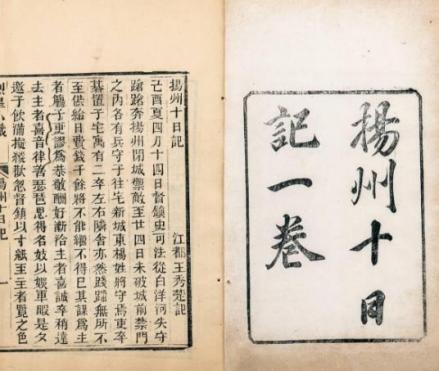 揚州十日
記一卷
揚州十日記
江都王秀楚記
己酉夏四月十四日督鎮史可法從白洋河失守
踉蹌奔揚州閉城禦敵至廿四日未破城前禁門
之内各有兵守予往宅新城東楊姓將守焉吏卒
碁置予宅寓有二卒左右隣舍亦然踐踏無所不
至供給日費錢千餘將不能繼不得已共謀爲主
者觴予更謬爲恭敬酬好漸洽主者喜誠卒稍遠
去主者喜音律善琵琶思得名妓以娛軍暇是夕
邀予飲滿擬縱歡忽督鎮以寸紙至主者覽之色
揚州十日記
一